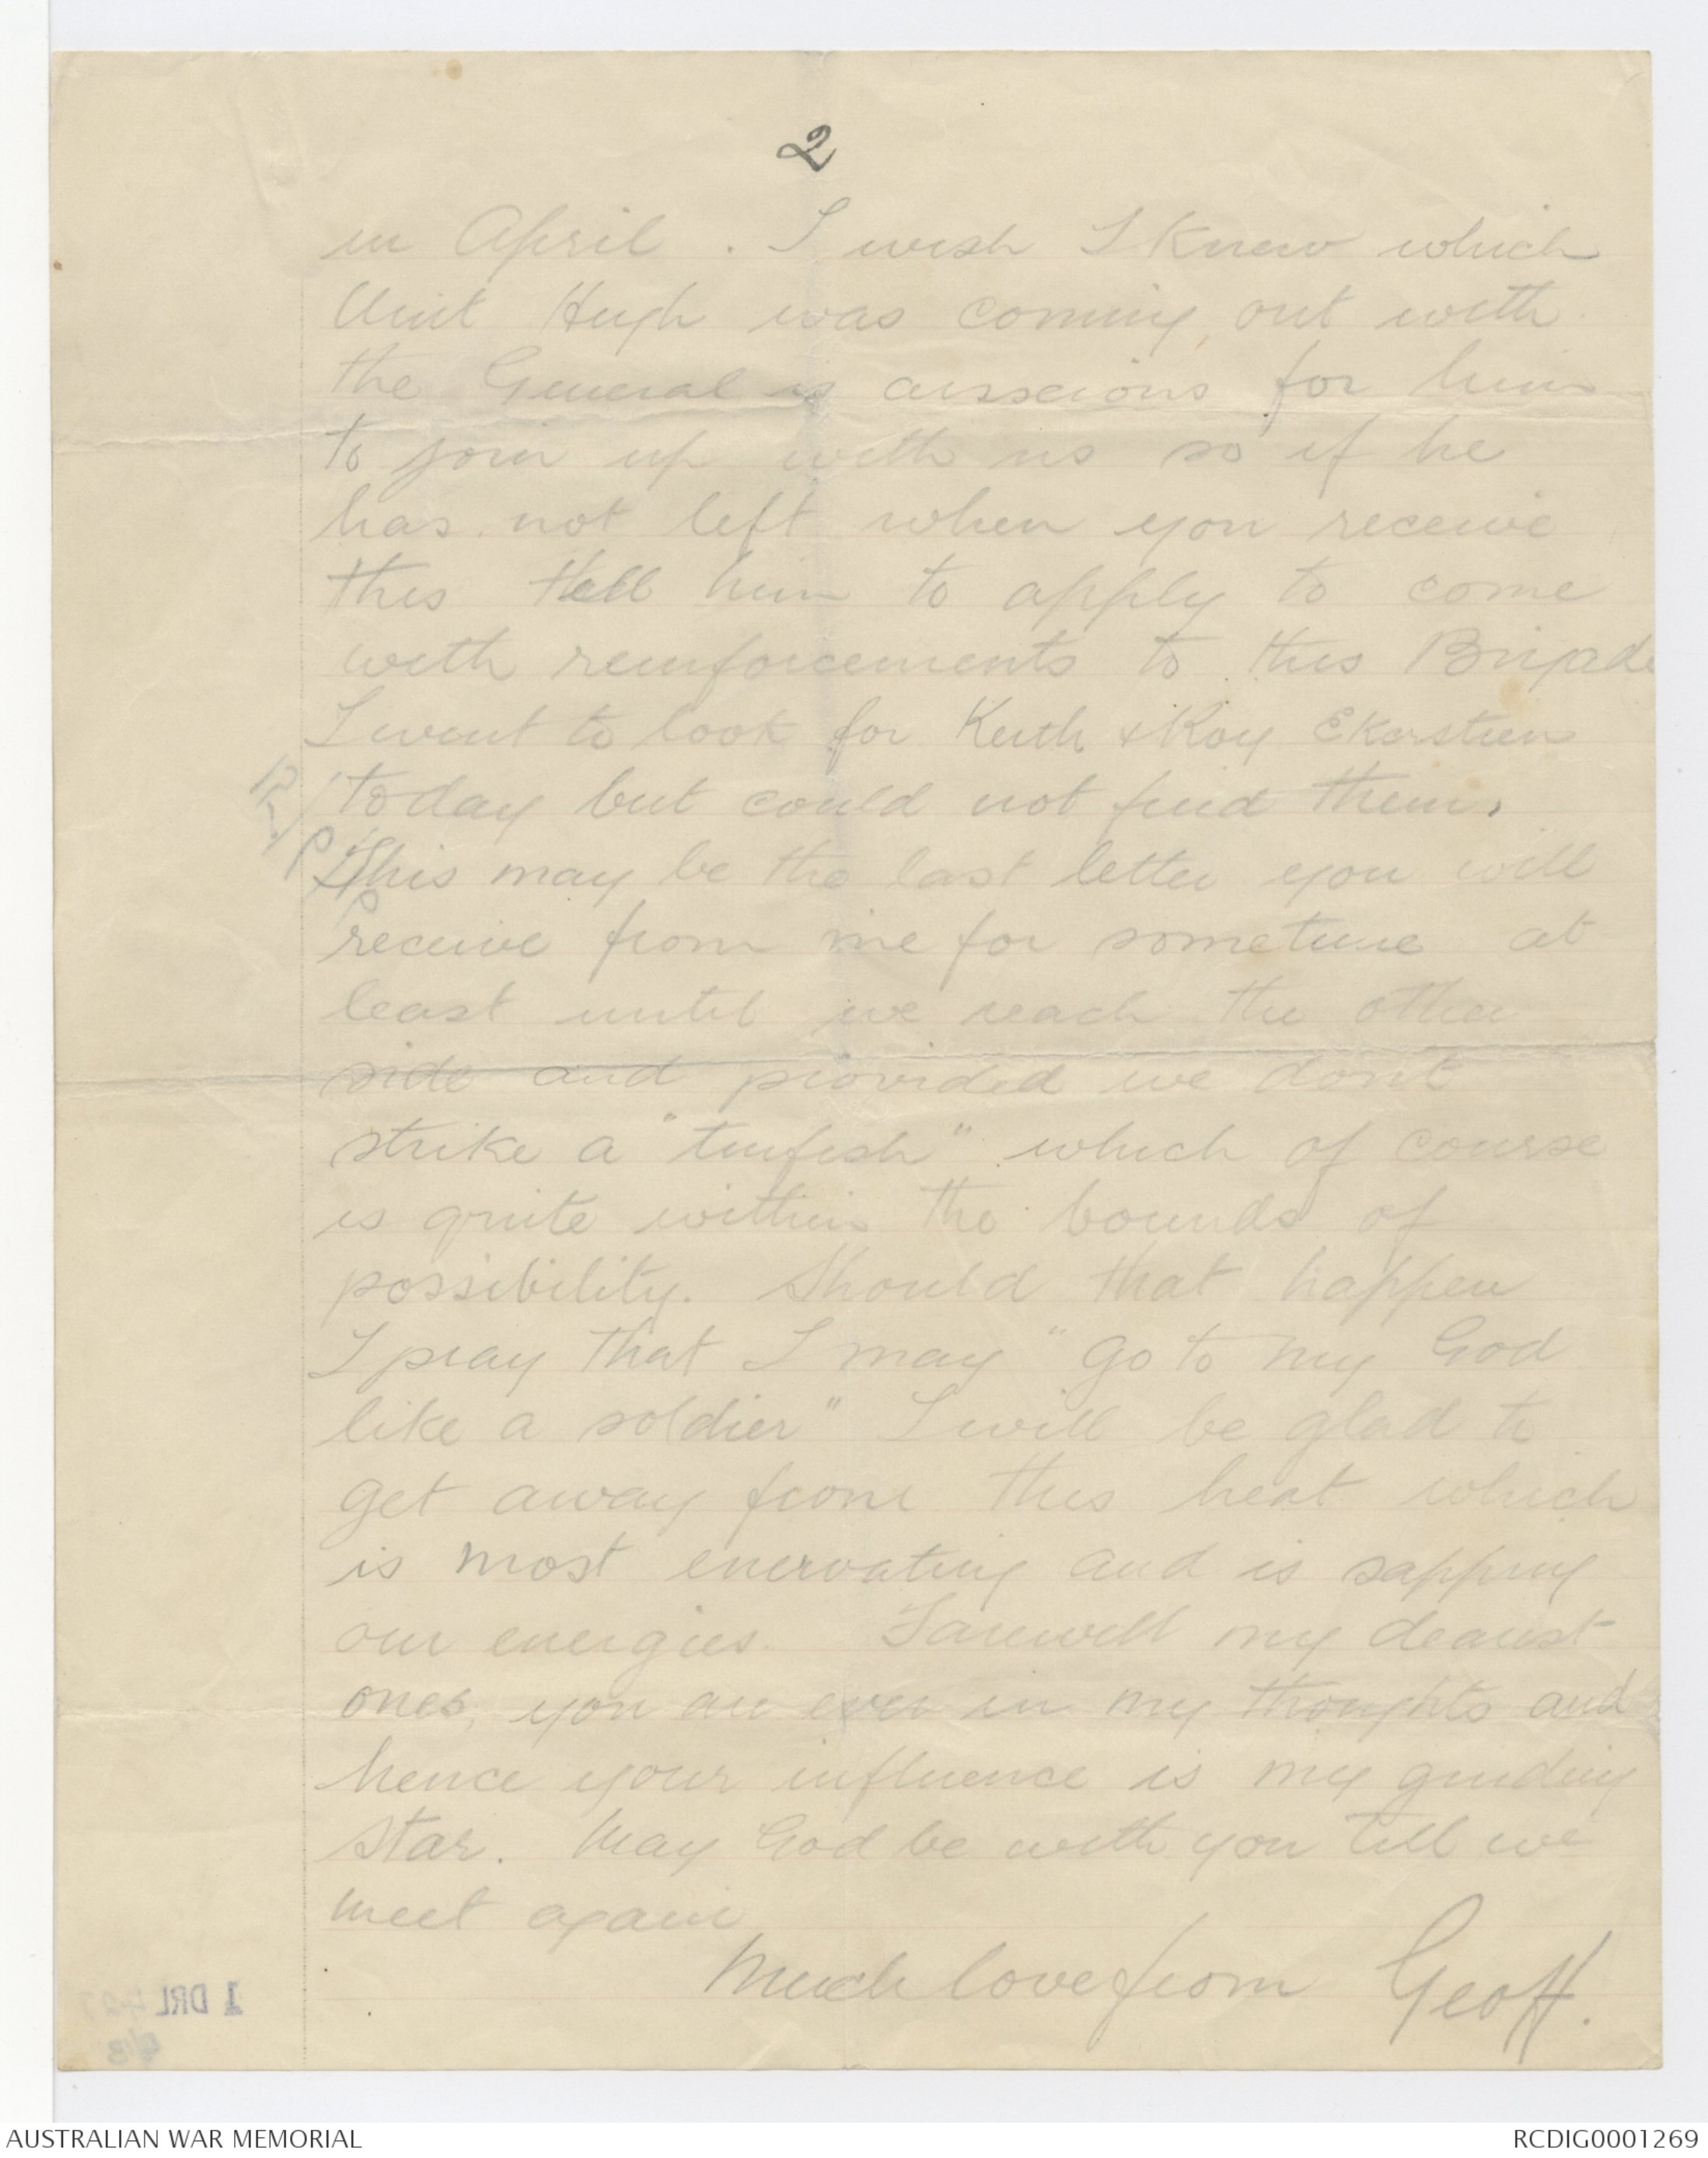 2
in April . I wish I knew which
Unit Hugh was coming out with
the General is anxious for him
to join up with us so if he
has not left when you receive
this tell him to apply to come
with reinforcements to this Brigade
I went to look for Keith & Roy Ekerstein
today but could not find them.
This may be the last letter you will
receive from me for sometime at
least until we reach the other
side and provided we dont
strike a "tinfish" which of course
is quite within the bounds of
possibility. Should that happen
I pray that I may "go to my God
like a soldier" I will be glad to
get away from this heat which
is most enervating and is sapping
our energies. Farewell my dearest
ones, you are ever in my thoughts and
hence your influence is my guiding
star. May God be with you till we
meet again
Much love from Geoff.
1 DRL
AUSTRALIAN WAR MEMORIAL
RCDIG0001269